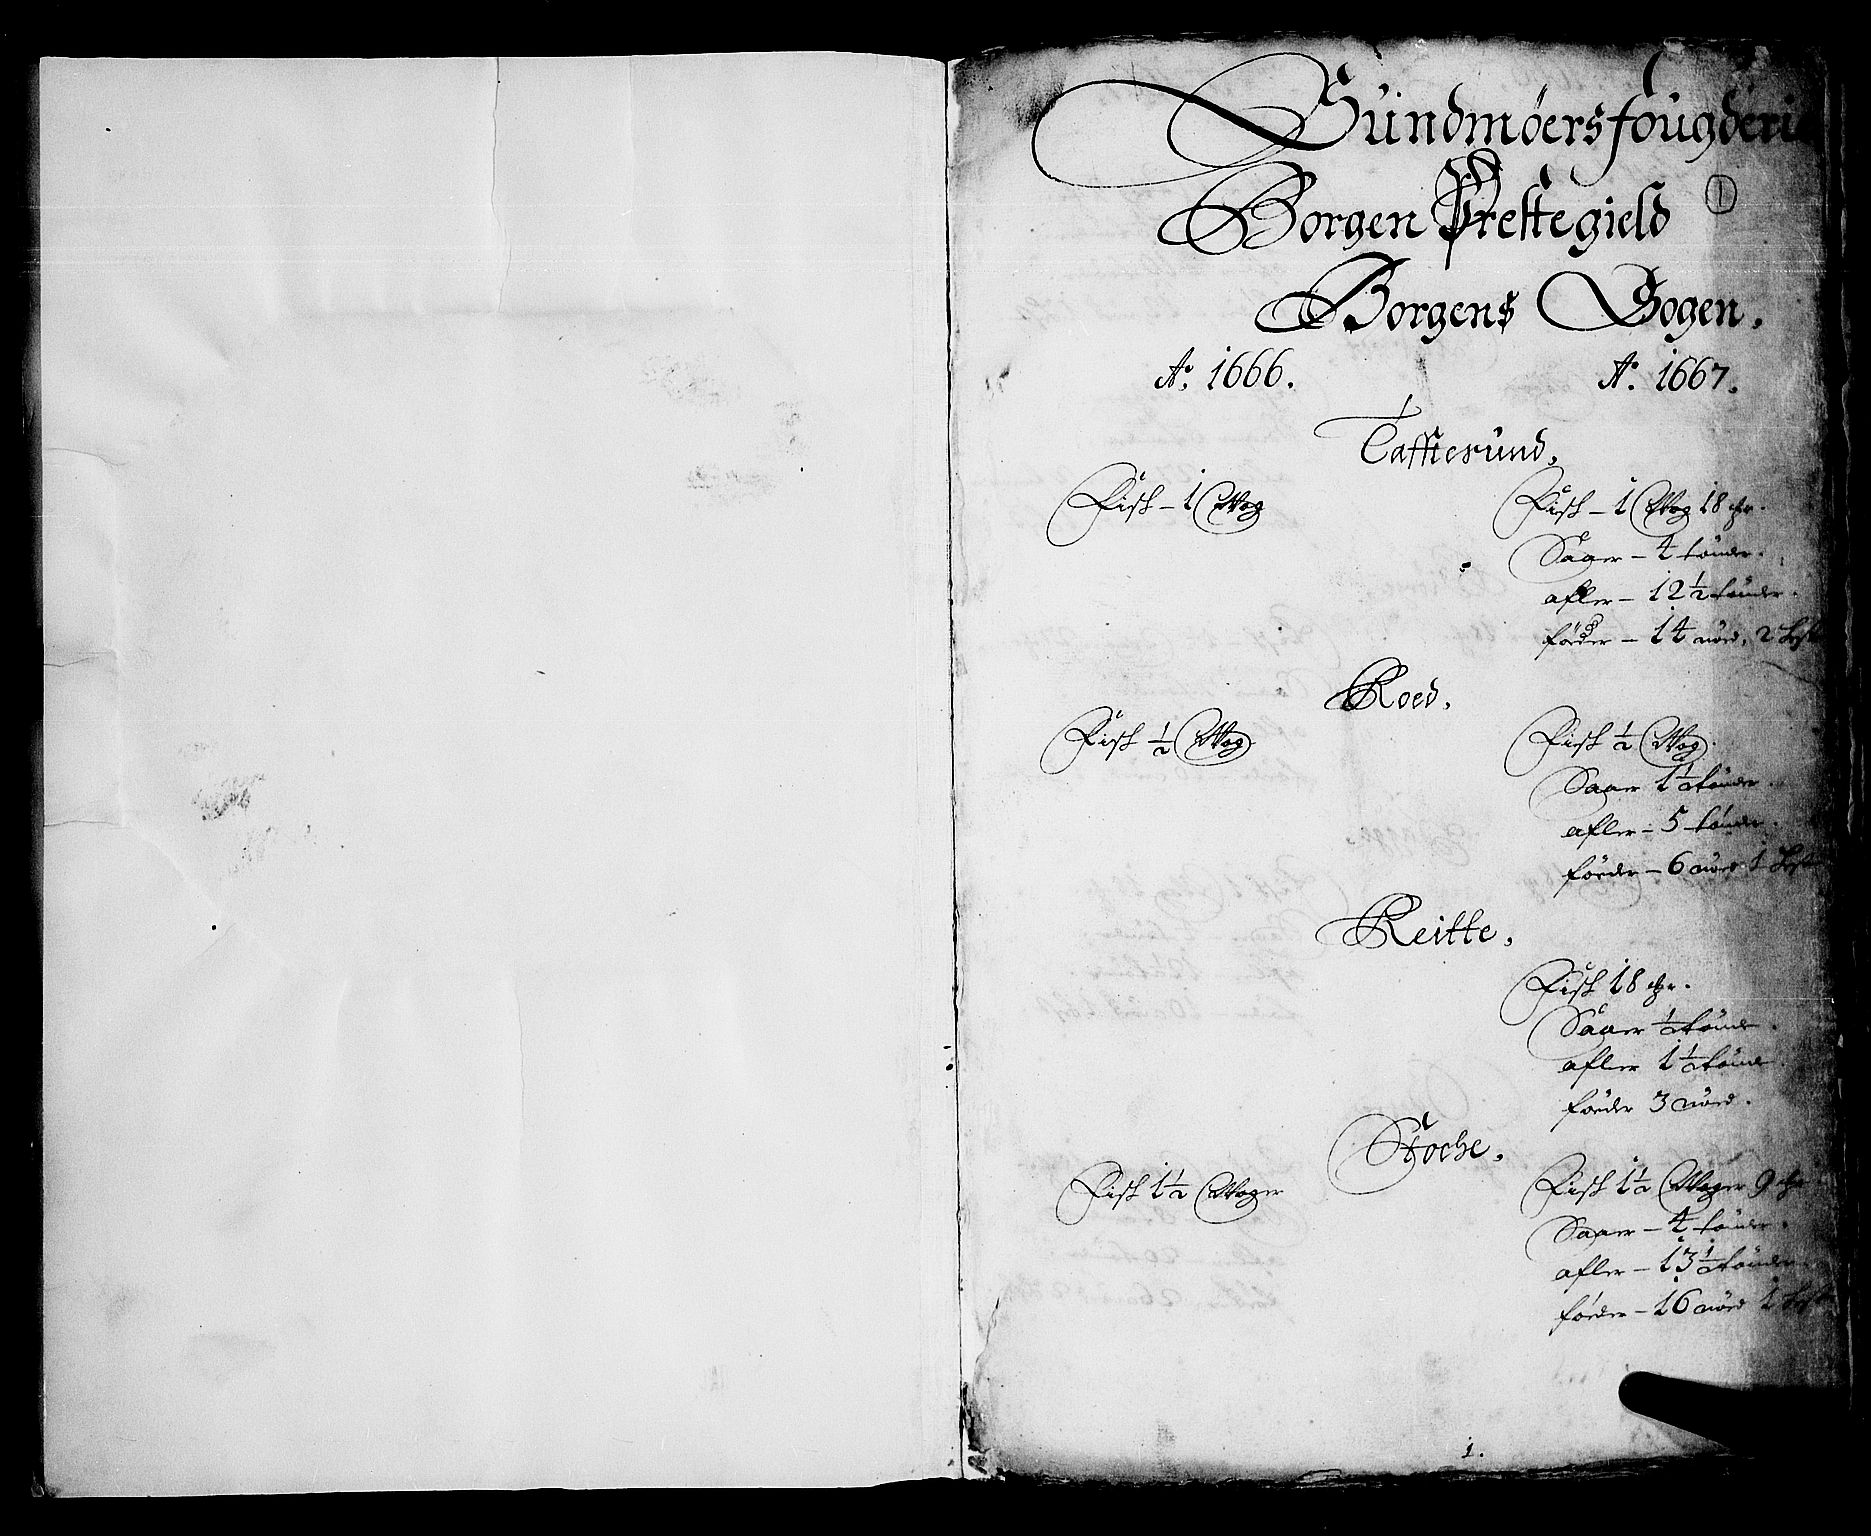 Sündmöersfougderie
Borgen Prestegield
1
Borgens Sogen.
Aº. 1666. Aº. 1667.
Tafftesund.
Fisk – 1 Wog
Fisk – 1 Wog 18 mr.
Saaer – 4 tönder.
afler – 12 ½ tönder.
föeder – 14 nöed, 2 hest
Roed.
Fisk ½ Wog
Fisk ½ Wog.
Saaer 1½ tönder.
afler – 5 tönder.
föeder – 6 nöed 1 hest
Reitte.
Fisk 18 mr.
Saaer ½ tönde.
afler 1½ tönde
föeder 3 nöed.
Stoche.
Fisk 1½ Woger
Fisk 1½ Woger 9 mr.
Saaer – 4 tönder.
afler – 13½ tönder
föeder – 16 nöed 1 hest
1.